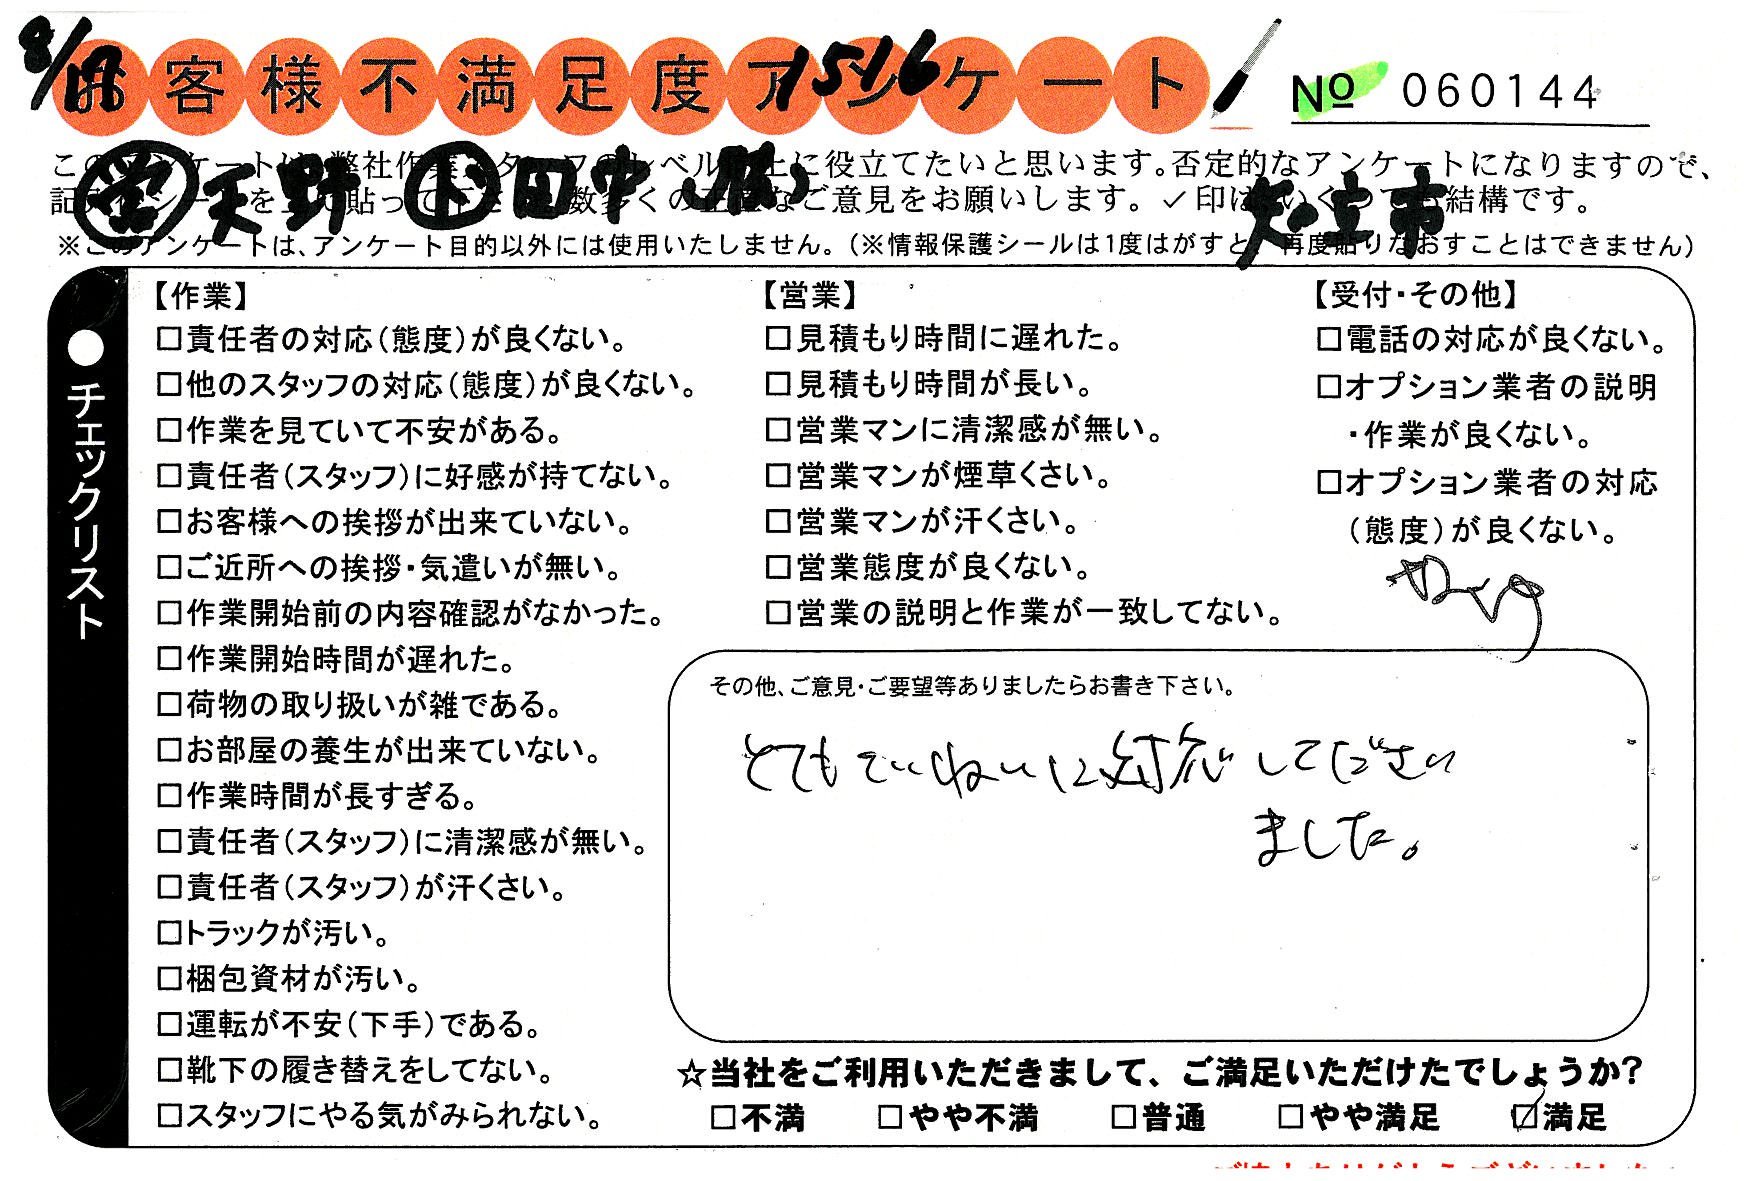 お客様不満足度アンケート 1516 № 060144
このアンケートは、弊社作業スタッフのレベル向上に役立てたいと思います。否定的なアンケートになりますので、
数多くの正直なご意見をお願いします。✓印はいくつでも結構です。
営 天野 下 田中 知立市
※このアンケートは、アンケート目的以外には使用いたしません。(※情報保護シールは1度はがすと、再度貼りなおすことはできません)
●チェックリスト
【作業】
□責任者の対応(態度)が良くない。
□他のスタッフの対応(態度)が良くない。
□作業を見ていて不安がある。
□責任者(スタッフ)に好感が持てない。
□お客様への挨拶が出来ていない。
□ご近所への挨拶・気遣いが無い。
□作業開始前の内容確認がなかった。
□作業開始時間が遅れた。
□荷物の取り扱いが雑である。
□お部屋の養生が出来ていない。
□作業時間が長すぎる。
□責任者(スタッフ)に清潔感が無い。
□責任者(スタッフ)が汗くさい。
□トラックが汚い。
□梱包資材が汚い。
□運転が不安(下手)である。
□靴下の履き替えをしてない。
□スタッフにやる気がみられない。
【営業】
□見積もり時間に遅れた。
□見積もり時間が長い。
□営業マンに清潔感が無い。
□営業マンが煙草くさい。
□営業マンが汗くさい。
□営業態度が良くない。
□営業の説明と作業が一致してない。
【受付・その他】
□電話の対応が良くない。
□オプション業者の説明
・作業が良くない。
□オプション業者の対応
(態度)が良くない。
その他、ご意見・ご要望等ありましたらお書き下さい。
とてもていねいに対応してださい
ました。
☆当社をご利用いただきまして、ご満足いただけたでしょうか?
□不満 □やや不満 □普通 □やや満足 ☑満足